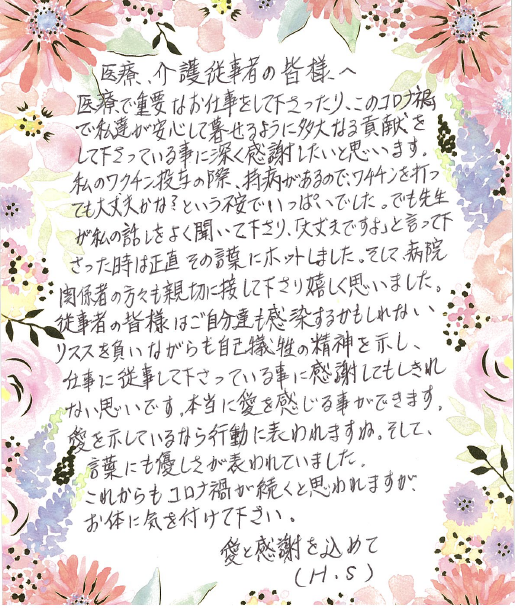 医療、介護従事者の皆様へ
医療で重要なお仕事をして下さったり、このコロナ禍
で私達が安心して暮せるように多大なる貢献を
して下さっている事に深く感謝したいと思います。
私のワクチン投与の際、持病があるので、ワクチンを打っ
ても大丈夫かな？という不安でいっぱいでした。でも先生
が私の話しをよく聞いて下さり、「大丈夫ですよ」と言って下
さった時は正直その言葉にホットしました。そして、病院
関係者の方々も親切に接して下さり嬉しく思いました。
従事者の皆様はご自分達も感染するかもしれない、
リススを負いながらも自己犠牲の精神を示し、
仕事に従事して下さっている事に感謝してもしきれ
ない思いです。本当に愛を感じる事ができます。
愛を示しているなら行動に表われますね。そして、
言葉にも優しさが表われていました。
これからもコロナ禍が続くと思われますが、
お体に気を付けて下さい。
愛と感謝を込めて
（H.S）